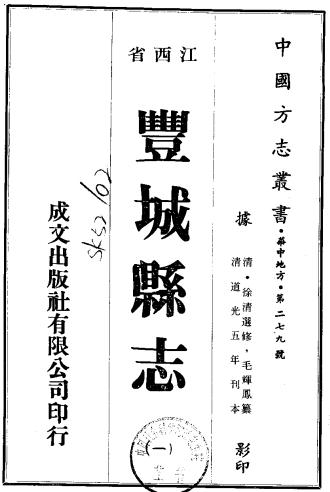 中國方志叢書•華中地方•第二七九號
據
清•徐清選修,毛輝鳳纂
清道光五年刊本
影印
江西省
豐城縣志
(一)
成文出版社有限公司印行